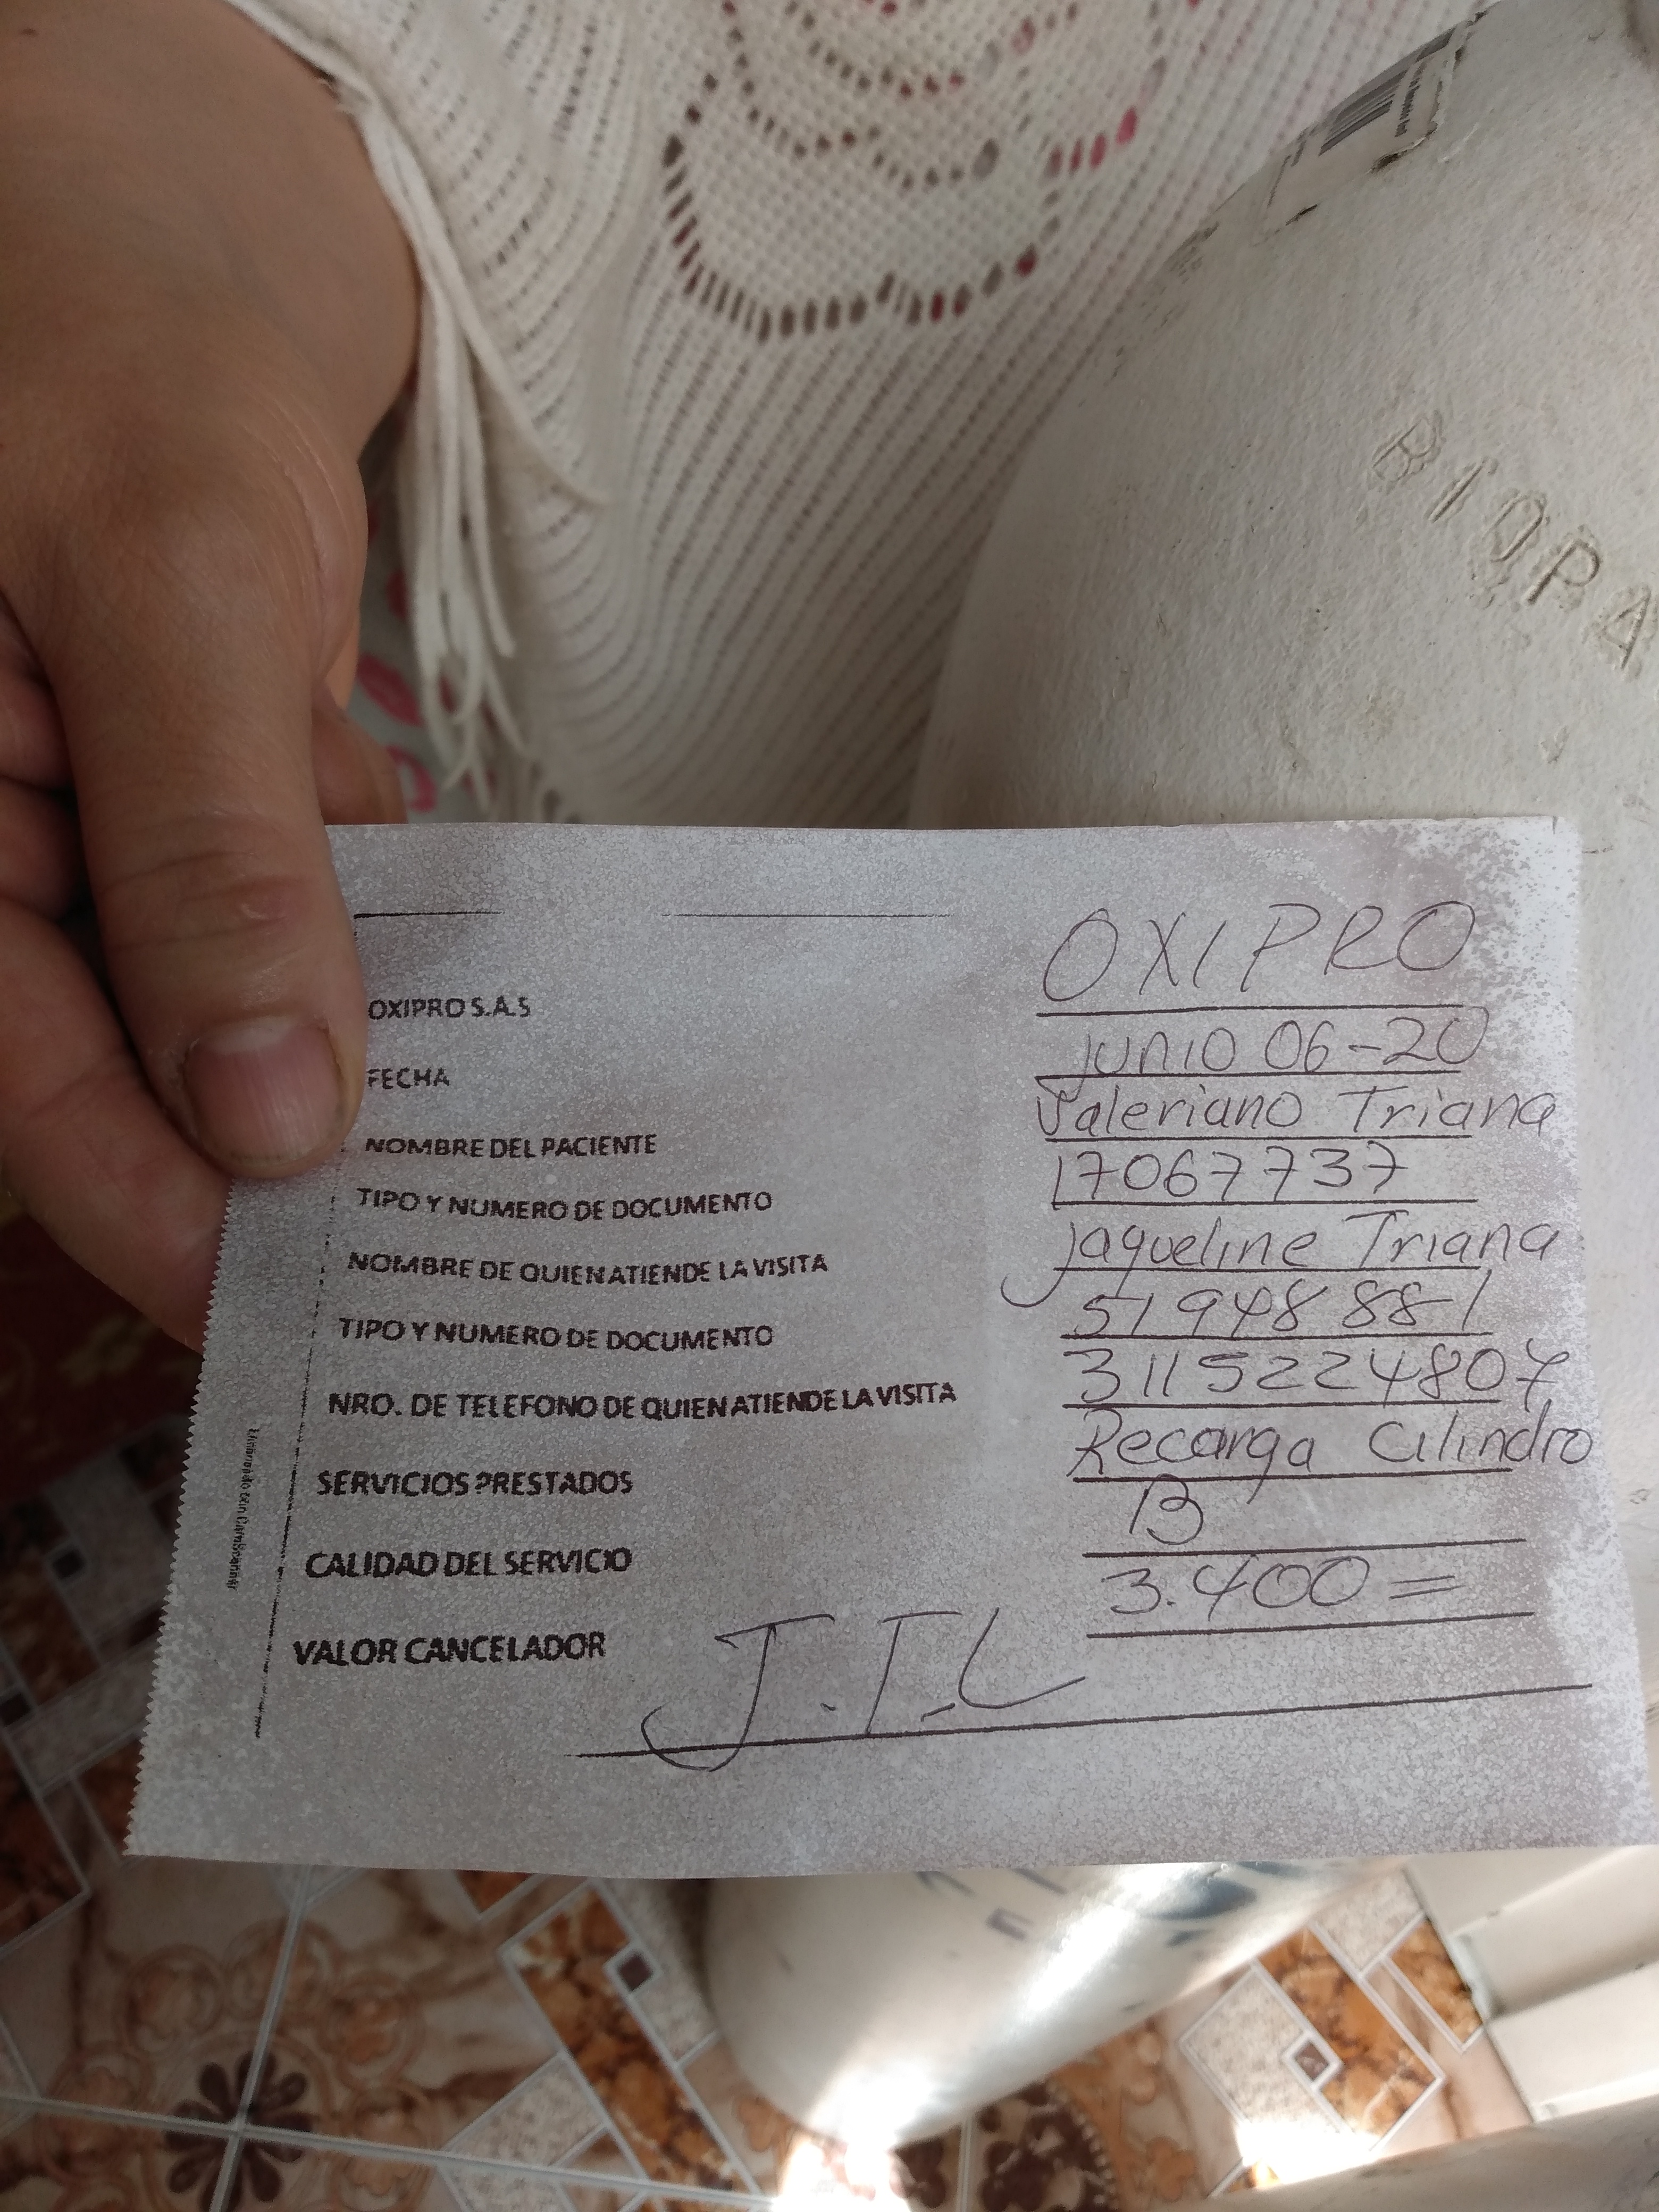 BIOPA
OXIPRO S.A.S OXIPRO
FECHA junio 06-20
NOMBRE DEL PACIENTE Valeriano Triana
TIPO Y NUMERO DE DOCUMENTO 17067737
NOMBRE DE QUIEN ATIENDE LA VISITA Jaqueline Triana
TIPO Y NUMERO DE DOCUMENTO 51948881
NRO. DE TELEFONO DE QUIEN ATIENDE LA VISITA 3115224807
SERVICIOS PRESTADOS Recarga Cilindro
CALIDAD DEL SERVICIO B
VALOR CANCELADOR 3.400=
J.T.L